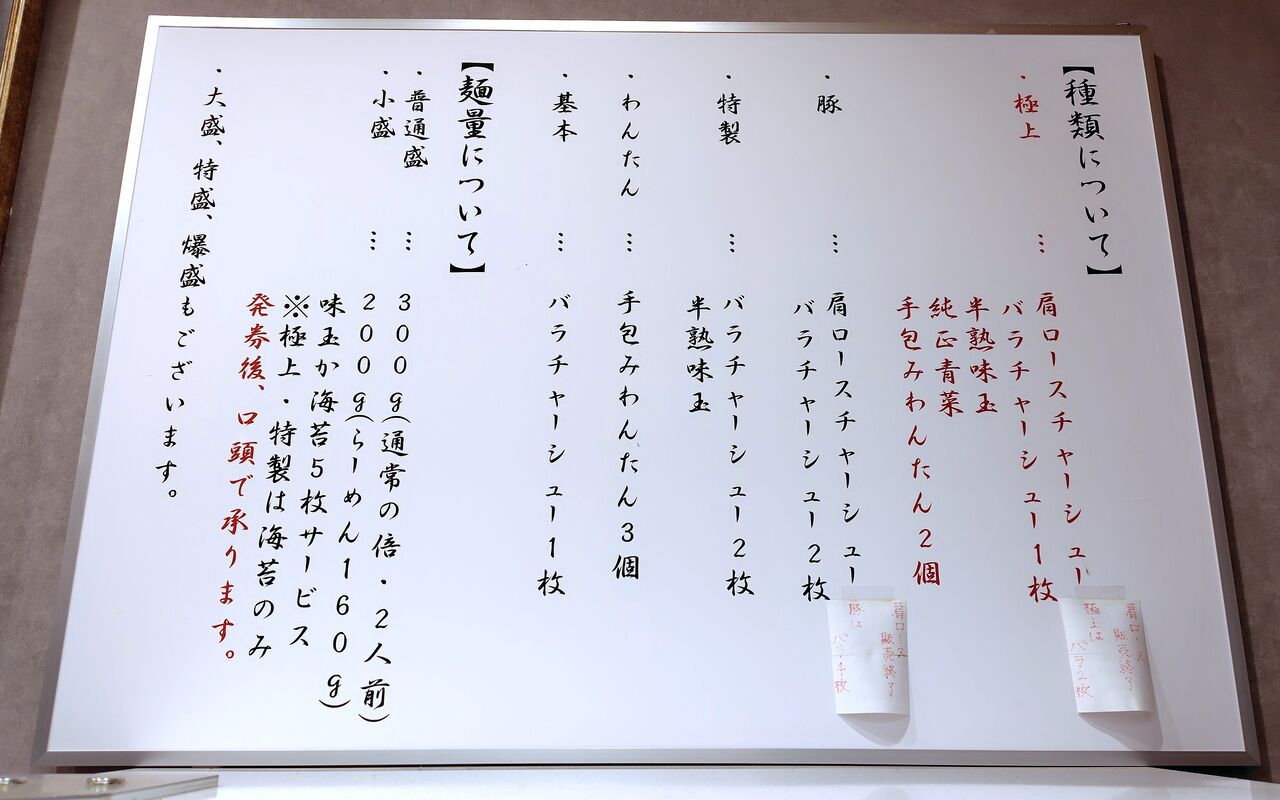 【種類について】
・極上 … 肩ロースチャーシュー
バラチャーシュー1枚
半熟味玉
純正青菜
手包みわんたん2個
・豚 … 肩ロースチャーシュー
バラチャーシュー2枚
・特製 … バラチャーシュー2枚
半熟味玉
・わんたん … 手包みわんたん3個
・基本 … バラチャーシュー1枚
【麺量について】
・普通盛 … 300g(通常の倍・2人前)
・小盛 … 200g(らーめん160g)
味玉か海苔5枚サービス
※極上・特製は海苔のみ
発券後、口頭で承ります。
・大盛、特盛、爆盛もございます。
肩ロース
販売終了
極上は
バラ2枚
肩ロース
販売終了
豚は
バラ4枚